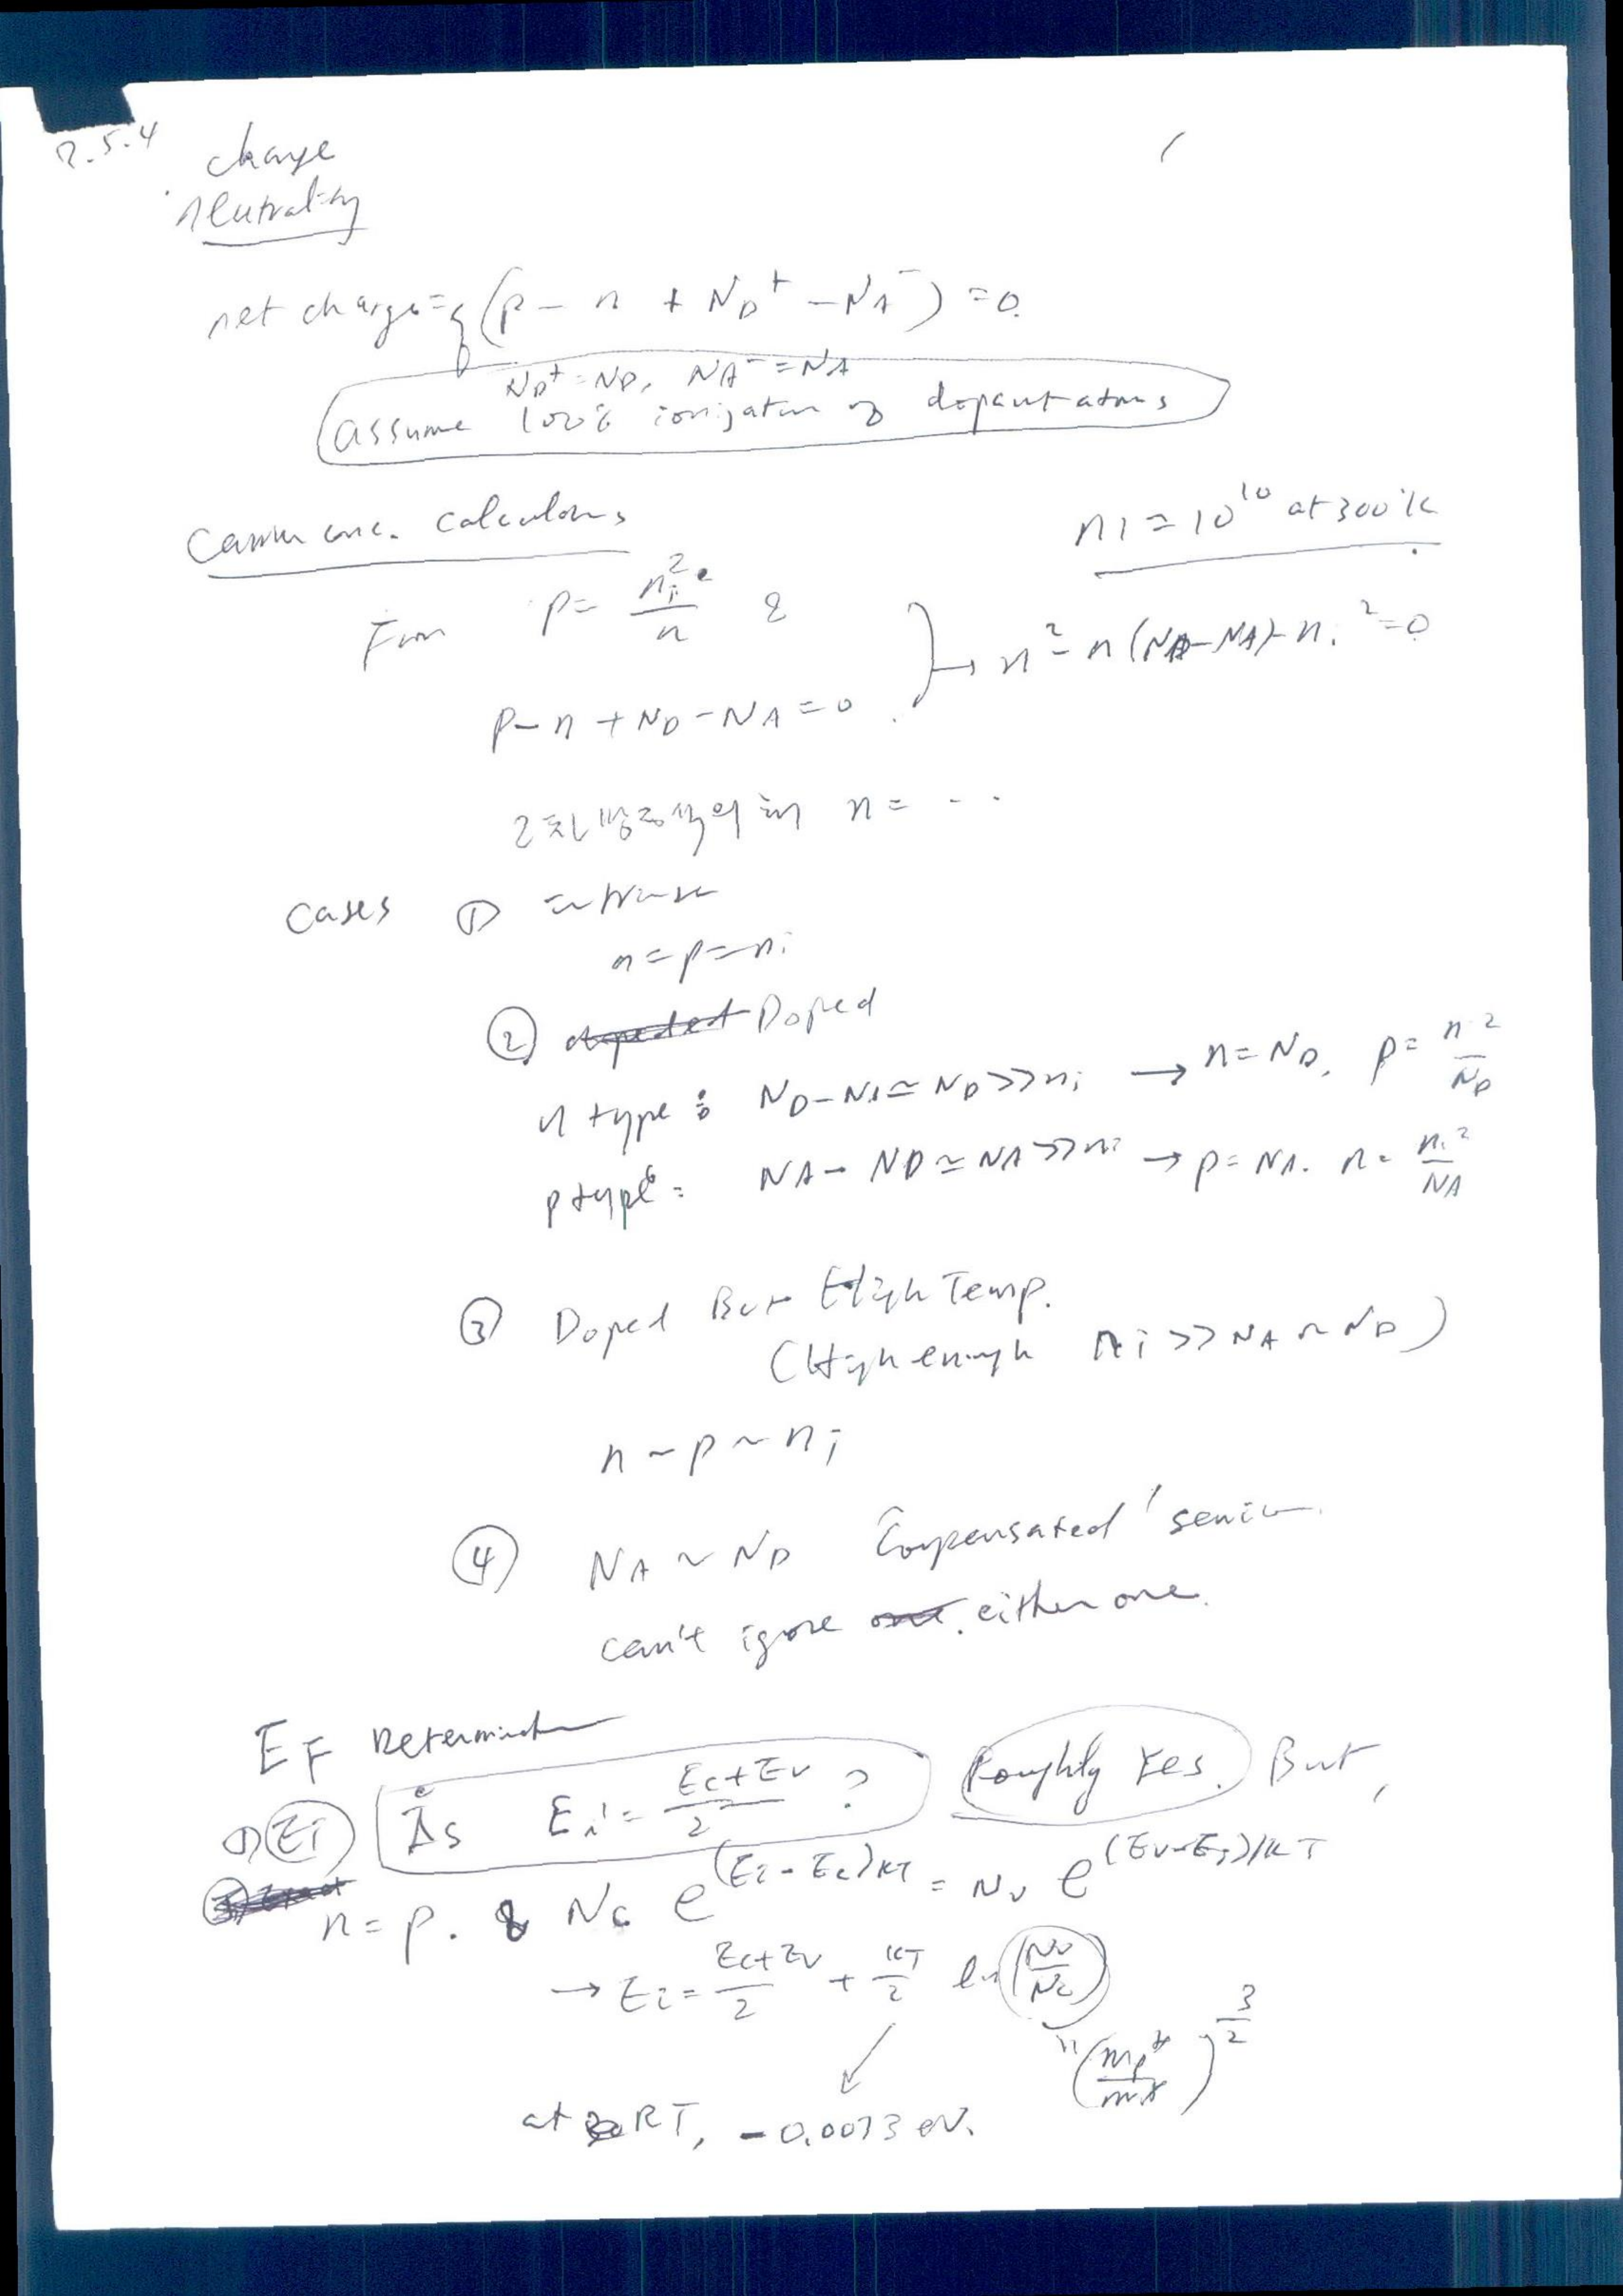 2.5.4 charge
neutrality
net charge = q(p - n + ND+ - NA-) = 0.
ND+ = ND, NA- = NA
assume 100% ionization of dopant atoms
Carrier conc. calculations
ni = 10^10 at 300°K
From p = ni²/n &
→ n² - n(ND-NA) - ni² = 0
p - n + ND - NA = 0
2차 방정식의 해 n = ...
Cases ① intrinsic
n = p = ni
② Doped
n type : ND - NA ≃ ND >> ni → n = ND, p = n²/ND
p type : NA - ND ≃ NA >> ni → p = NA. n = ni²/NA
③ Doped But High Temp.
(High enough ni >> NA ~ ND)
n ~ p ~ ni
④ NA ~ ND 'Compensated' semic
can't igore either one.
EF Determination
① Ei Is Ei = (Ec+Ev)/2 ? Roughly Yes. But,
n = p. & Nc e^(Ei-Ec)/KT = Nv e^(Ev-Ei)/KT
→ Ei = (Ec+Ev)/2 + KT/2 ln(Nv/Nc)
" (mp*/mn*)^3/2
at RT, -0.0073 eV.